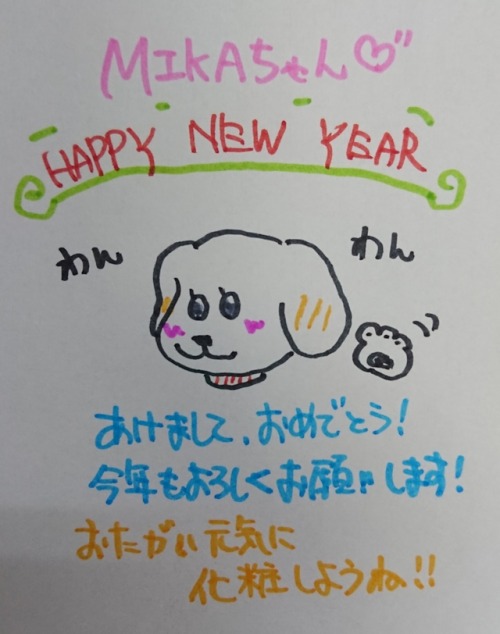 MIKAちゃん♡"
HAPPY NEW YEAR
わん
わん
あけまして、おめでとう!
今年もよろしくお願いします!
おたがい元気に
化粧しようね!!